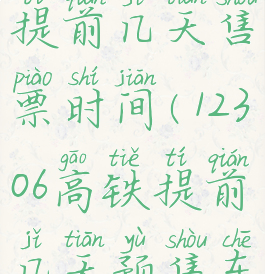 tí qián jǐ tiān shòu
提前几天售
piào shí jiān
票时间(123
gāo tiě tí qián
06高铁提前
jǐ tiān yù shòu chē
几天预售车